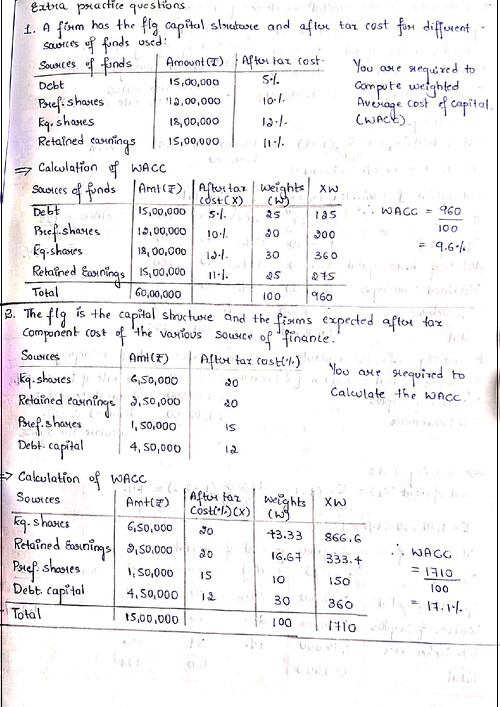 Extra practice questions.
1. A firm has the flg capital struture and after tax cost for different
sources of funds used:
Sources of funds Amount(₹) After tax cost.
Debt 15,00,000 5%
Pref. shares 12,00,000 10%
Eq. shares 18,00,000 12%
Retained earnings 15,00,000 11%
You are required to
compute weighted
Average cost of capital.
(WACC).
⇒ Calculation of WACC
Sources of funds Amt(₹) After tax cost(X) Weights (W) XW
Debt 15,00,000 5% 25 125
Pref. shares 12,00,000 10% 20 200
Eq. shares 18,00,000 12% 30 360
Retained Earnings 15,00,000 11% 25 275
Total 60,00,000 100 960
∴ WACC = 960
100
= 9.6%
2. The flg is the capital structure and the firms expected after tax
component cost of the various source of finance.
Sources Amt(₹) After tax cost(%)
Eq. shares 6,50,000 20
Retained earnings 2,50,000 20
Pref. shares 1,50,000 15
Debt capital 4,50,000 12
You are required to
Calculate the WACC.
⇒ Calculation of WACC
Sources Amt(₹) After tax Cost(%)(X) Weights (W) XW
Eq. shares 6,50,000 20 43.33 866.6
Retained Earnings 2,50,000 20 16.67 333.4
Pref. shares 1,50,000 15 10 150
Debt. capital 4,50,000 12 30 360
Total 15,00,000 100 1710
∴ WACC
= 1710
100
= 17.1%